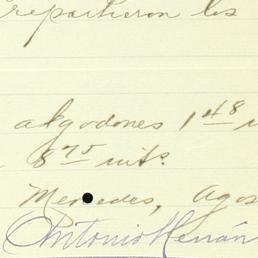 repartieron los
algodones 1 48
8 75 mts.
Mercedes, Agos
Antonio Hernán